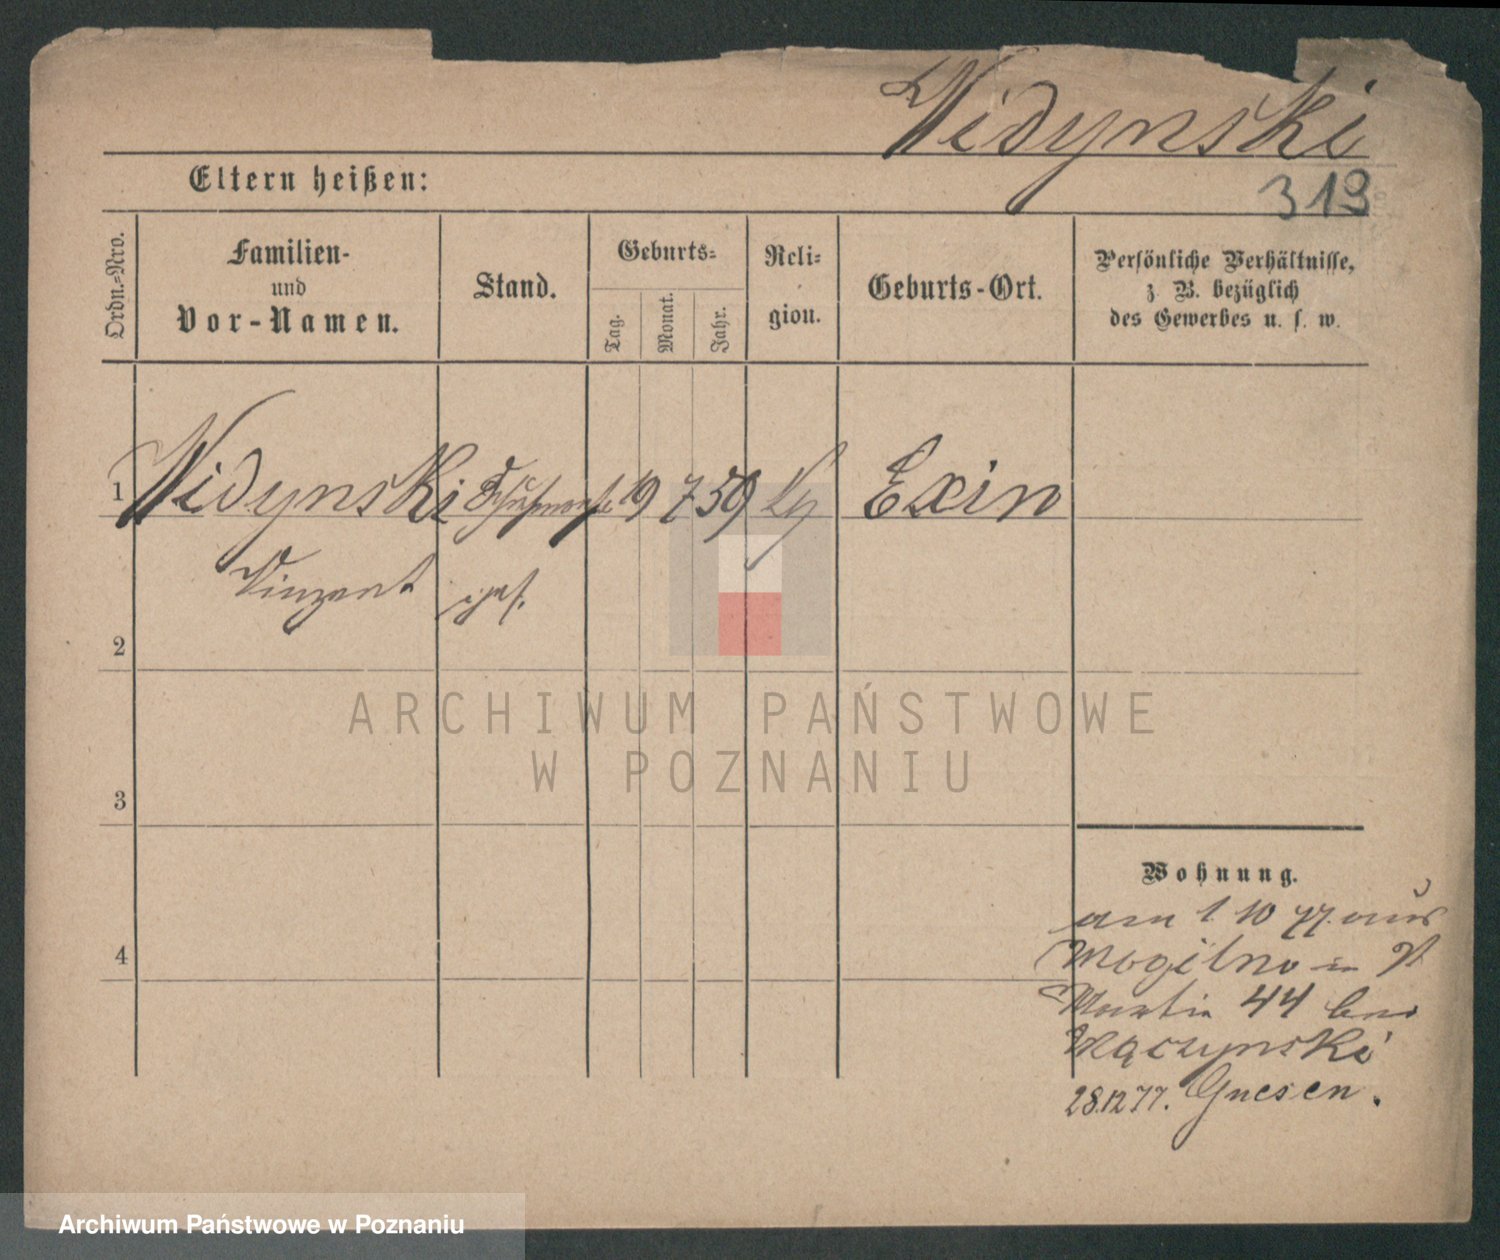 Widynski
Eltern heißen:
319
Ordn.-Nro.
Familien-
und
Vor-Namen.
Stand.
Geburts-
Tag.
Monat.
Jahr.
Reli-
gion.
Geburts-Ort.
Persönliche Verhältnisse,
z. B. bezüglich
des Gewerbes u. s. w.
1 Widynski 19 7 59 Exin
Vinzent
2
3
4
Wohnung.
am 1 10 77. aus
Mogilno in St
Martin 44 bei
28.12 77. Gnesen.
ARCHIWUM PAŃSTWOWE
W POZNANIU
Archiwum Państwowe w Poznaniu